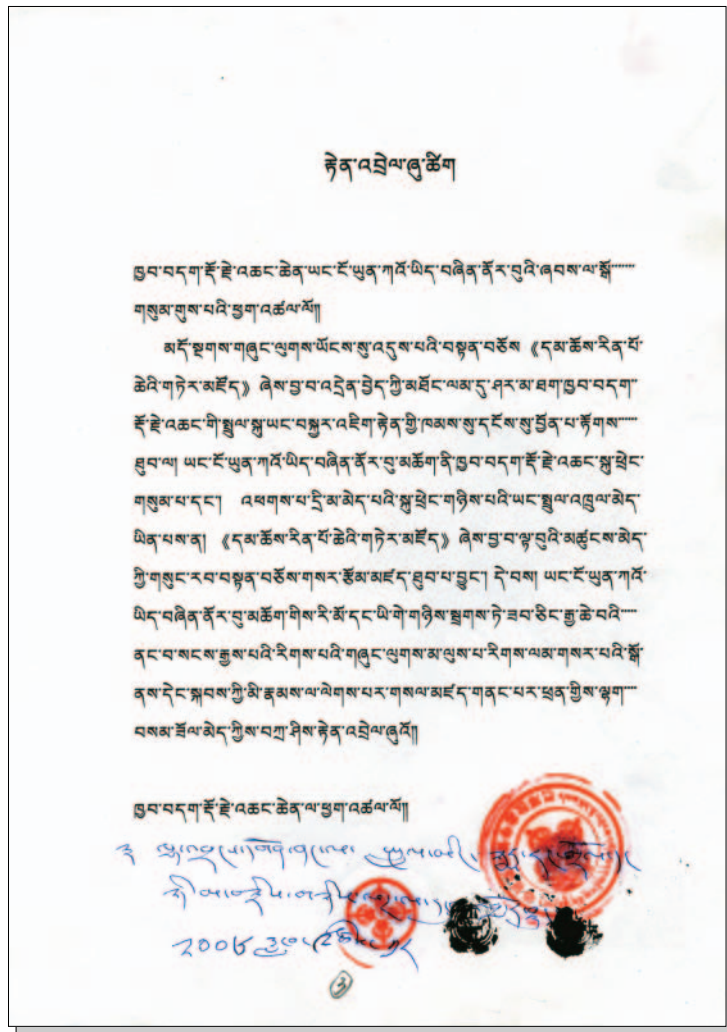 རྟེན་འབྲེལ་ཞུ་ཚིག
ཁྱབ་བདག་རྡོ་རྗེ་འཆང་ཆེན་ཡང་ངོ་ཡུན་ཀའོ་ཡིད་བཞིན་ནོར་བུའི་ཞབས་ལ་སྒོ་་་་་་
གསུམ་གུས་པའི་ཕྱག་འཚལ་ལོ།།
མདོ་སྔགས་གཞུང་ལུགས་ཡོངས་སུ་འདུས་པའི་བསྟན་བཅོས《དམ་ཆོས་རིན་པོ་
ཆེའི་གཏེར་མཛོད》ཞེས་བྱ་བ་འདྲེན་བྱེད་ཀྱི་མཐོང་ལམ་དུ་ཤར་མ་ཐག་ཁྱབ་བདག་་
རྡོ་རྗེ་འཆང་གི་སྤྲུལ་སྐུ་ཡང་བསྐྱར་འཇིག་རྟེན་གྱི་ཁམས་སུ་དངོས་སུ་བྱོན་པ་རྟོགས་་་་་་
ཐུབ་ལ། ཡང་ངོ་ཡུན་ཀའོ་ཡིད་བཞིན་ནོར་བུ་མཆོག་ནི་ཁྱབ་བདག་རྡོ་རྗེ་འཆང་སྐུ་ཕྲེང་
གསུམ་པ་དང་། འཕགས་པ་དྲི་མ་མེད་པའི་སྐུ་ཕྲེང་གཉིས་པའི་ཡང་སྤྲུལ་འཁྲུལ་མེད་
ཡིན་པས་ན། 《དམ་ཆོས་རིན་པོ་ཆེའི་གཏེར་མཛོད》ཞེས་བྱ་བ་ལྟ་བུའི་མཚུངས་མེད་
ཀྱི་གསུང་རབ་བསྟན་བཅོས་གསར་རྩོམ་མཛད་ཐུབ་པ་བྱུང་། དེ་བས། ཡང་ངོ་ཡུན་ཀའོ་
ཡིད་བཞིན་ནོར་བུ་མཆོག་གིས་རི་མོ་དང་ཡི་གེ་གཉིས་སྦྲགས་ཏེ་ཟབ་ཅིང་རྒྱ་ཆེ་བའི་་་་་
ནང་བ་སངས་རྒྱས་པའི་རིགས་པའི་གཞུང་ལུགས་མ་ལུས་པ་རིགས་ལམ་གསར་པའི་སྒོ་
ནས་དེང་སྐབས་ཀྱི་མི་རྣམས་ལ་ལེགས་པར་གསལ་མཛད་གནང་པར་ཕྲན་གྱིས་ལྷག་་་་་
བསམ་ཟོལ་མེད་ཀྱིས་བཀྲ་ཤིས་རྟེན་འབྲེལ་ཞུའོ།།
ཁྱབ་བདག་རྡོ་རྗེ་འཆང་ཆེན་ལ་ཕྱག་འཚལ་ལོ།།